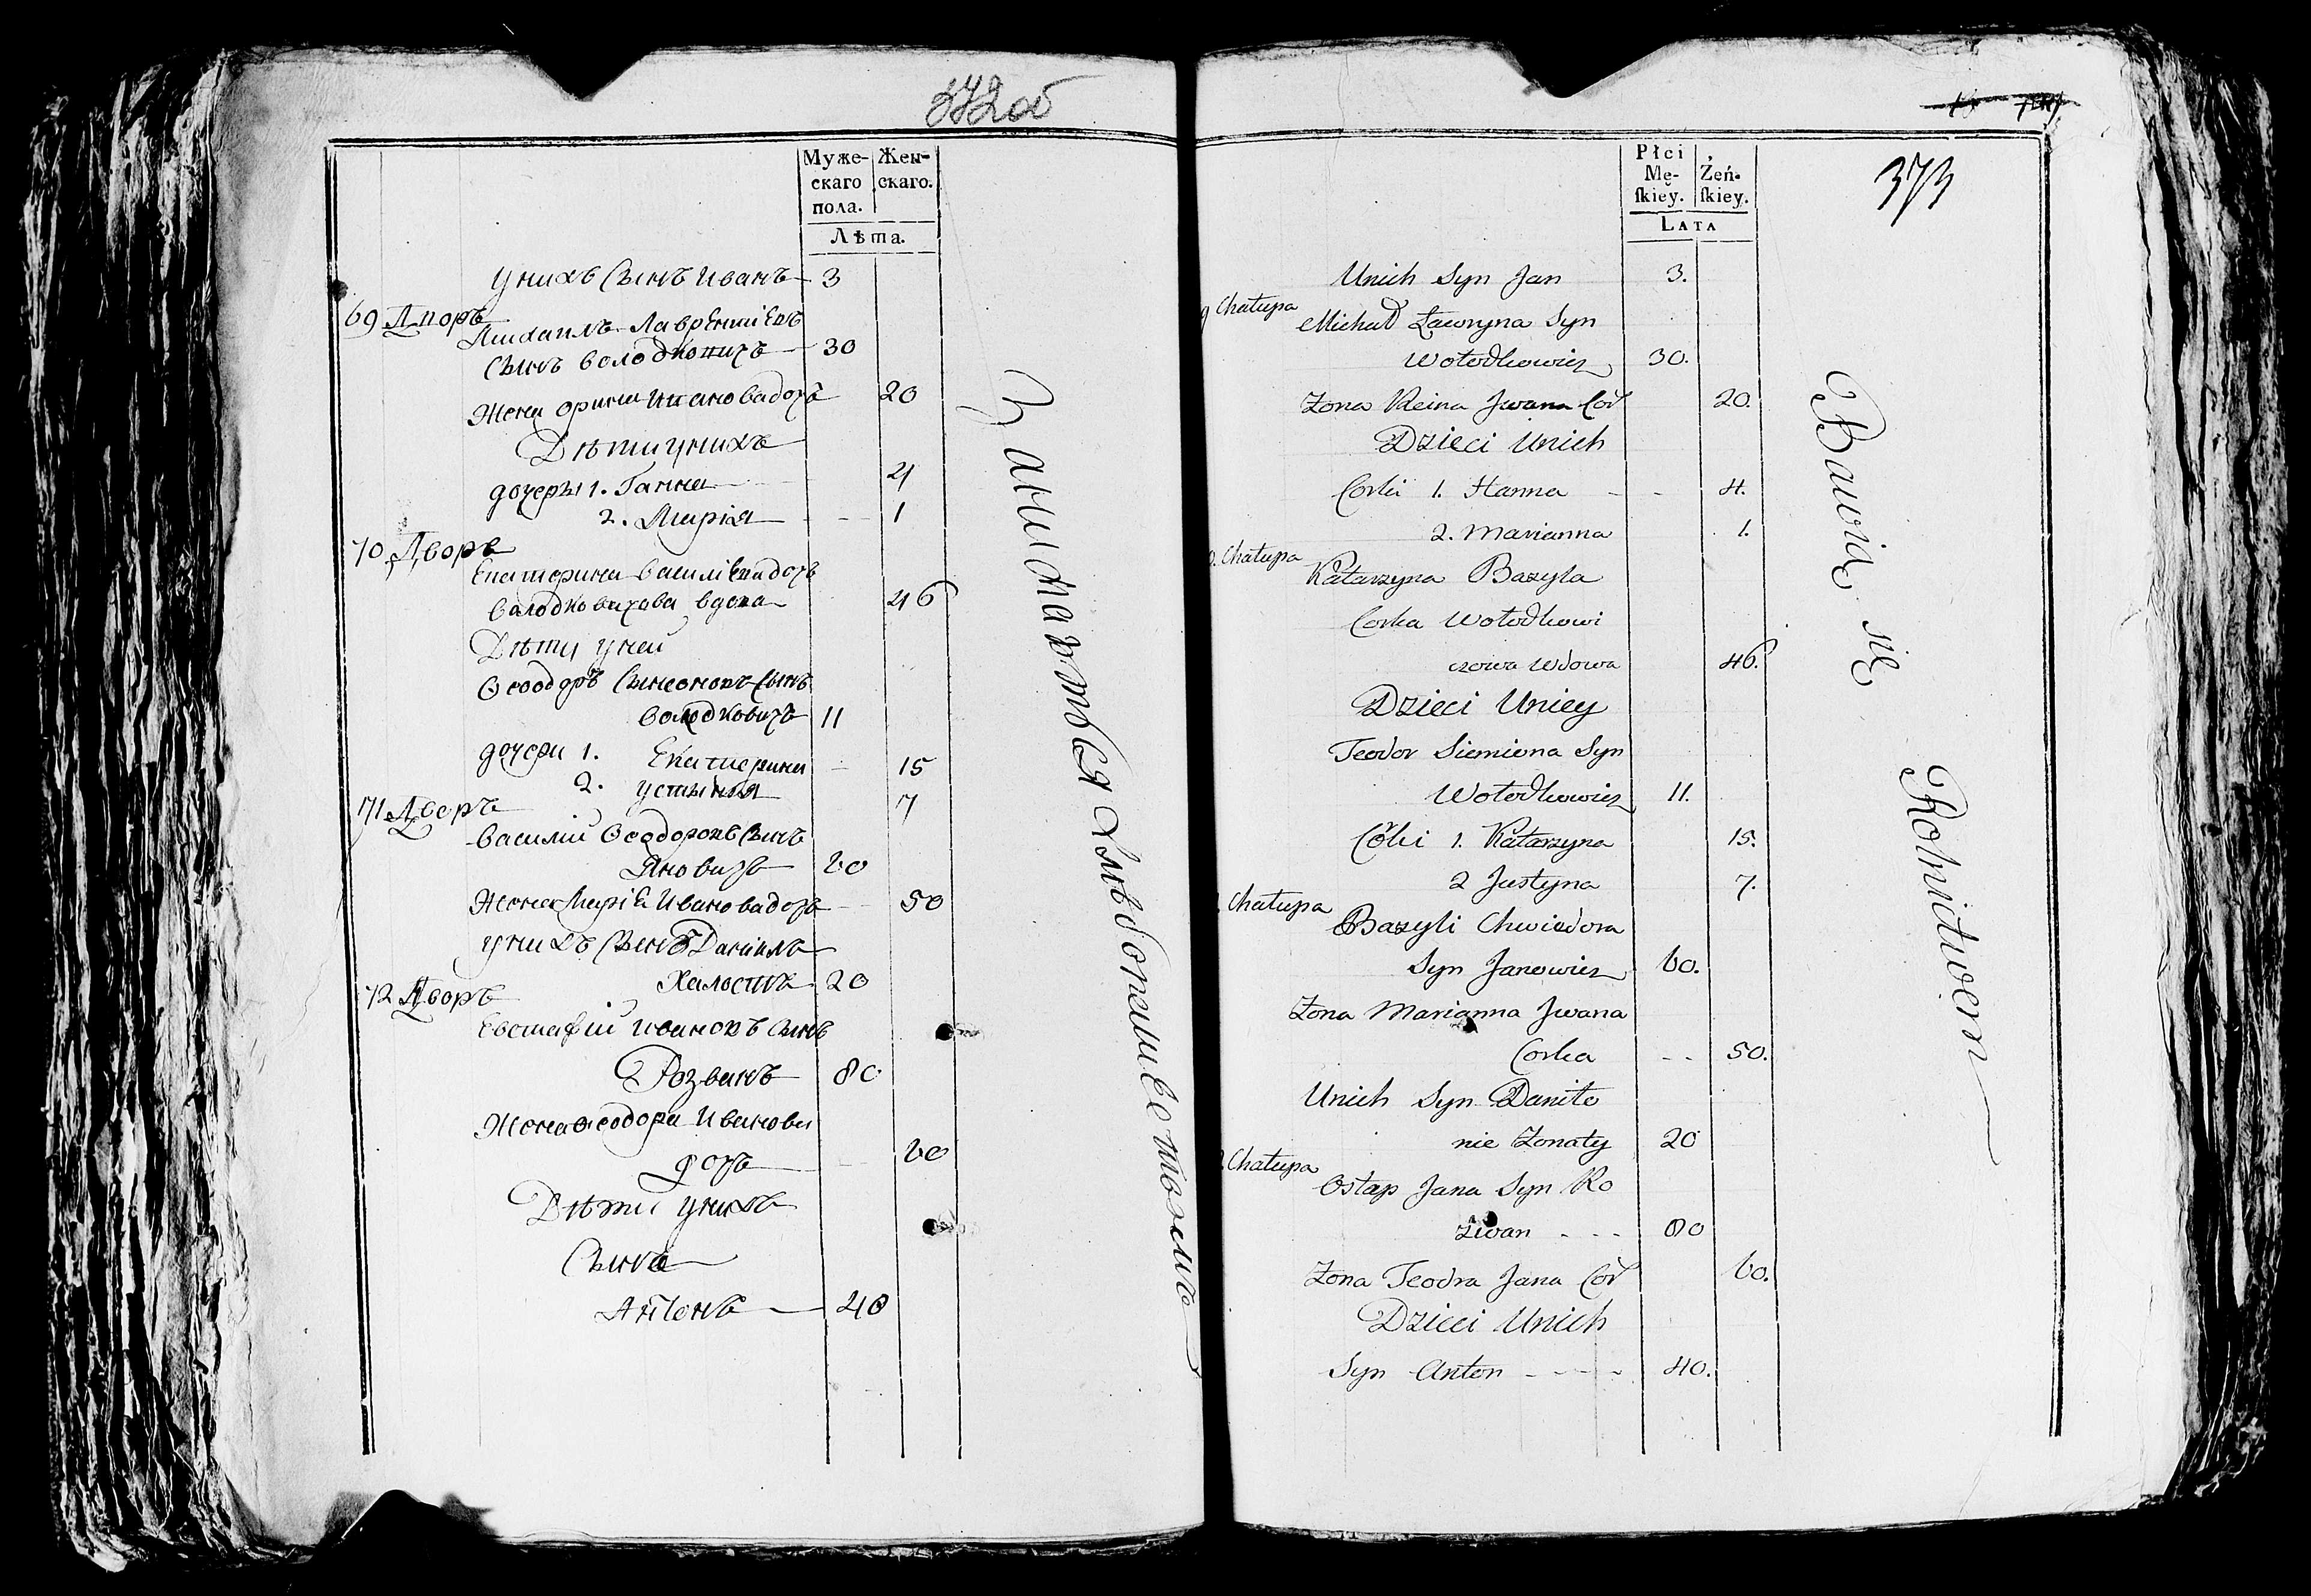 372об
Муже-
скаго
пола.
Жен-
скаго.
Лѣта.
у нихъ Сынъ Иванъ 3
69 Дворъ
Михаилъ Лаврентіевъ
Сынъ Володковичъ 30
Жена Орина Иванова дочь 20
Дѣти у нихъ
дочеры 1. Ганна 4
2. Марія 1
70 Дворъ
Екатерина Василіева дочь
Валодковичова вдова 46
Дѣти у ней
Ѳеодоръ Сымеоновъ Сынъ
Володковичъ 11
дочери 1. Екатерина 15
2. Устынія 7
71 Дворъ
Василій Ѳеодоровъ Сынъ
Яновичъ 60
Жена Марія Иванова дочь 50
у нихъ Сынъ Данилъ
Халостъ 20
72 Дворъ
Евстафій Ивановъ Сынъ
Розванъ 80
Жена Ѳеодора Иванова
дочь 60
Дѣти у нихъ
Сынъ
Антонъ 40
Занимаются Хлебопашествомъ
373
Płci
Mę-
ſkiey.
Żeń-
ſkiey.
LATA
Unich Syn Jan 3.
Chałupa
Michał Ławryna Syn
Wołodkowicz 30.
Zona Reina Jwana Cor 20.
Dzieci Unich
Corki 1. Hanna 4.
2. Marianna 1.
Chałupa
Katarzyna Bazyla
Corka Wołodkowi
czowa Wdowa 46.
Dzieci Uniey
Teodor Siemiona Syn
Wołodkowicz 11.
Corki 1. Katarzyna 15.
2 Justyna 7.
Chałupa
Bazyli Chwiedora
Syn Janowicz 60.
Zona Marianna Jwana
Corka 50.
Unich Syn Daniło
nie Zonaty 20
Chałupa
Ostap Jana Syn Ro
zwan 80
Zona Teodra Jana Cor 60.
Dzieci Unich
Syn Anton 40.
Bawią się Rolnictwem